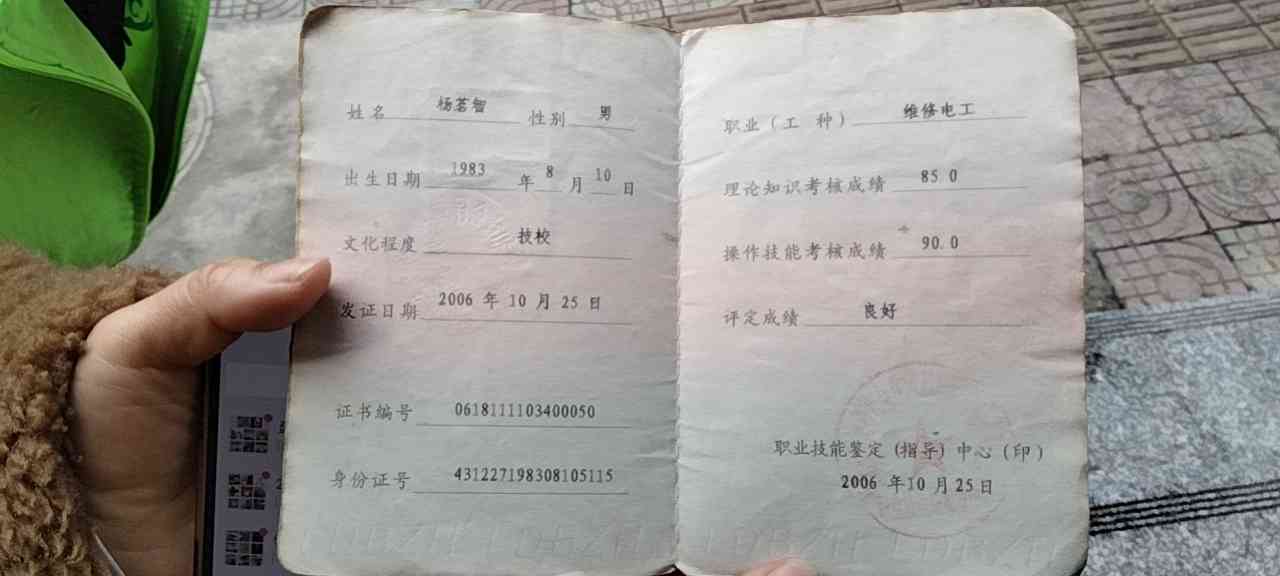 姓名 杨茗智 性别 男
出生日期 1983 年 8 月 10 日
文化程度 技校
发证日期 2006 年 10 月 25 日
证书编号 0618111103400050
身份证号 431227198308105115
职业（工 种） 维修电工
理论知识考核成绩 85.0
操作技能考核成绩 90.0
评定成绩 良好
职业技能鉴定（指导）中心（印）
2006 年10 月 25 日